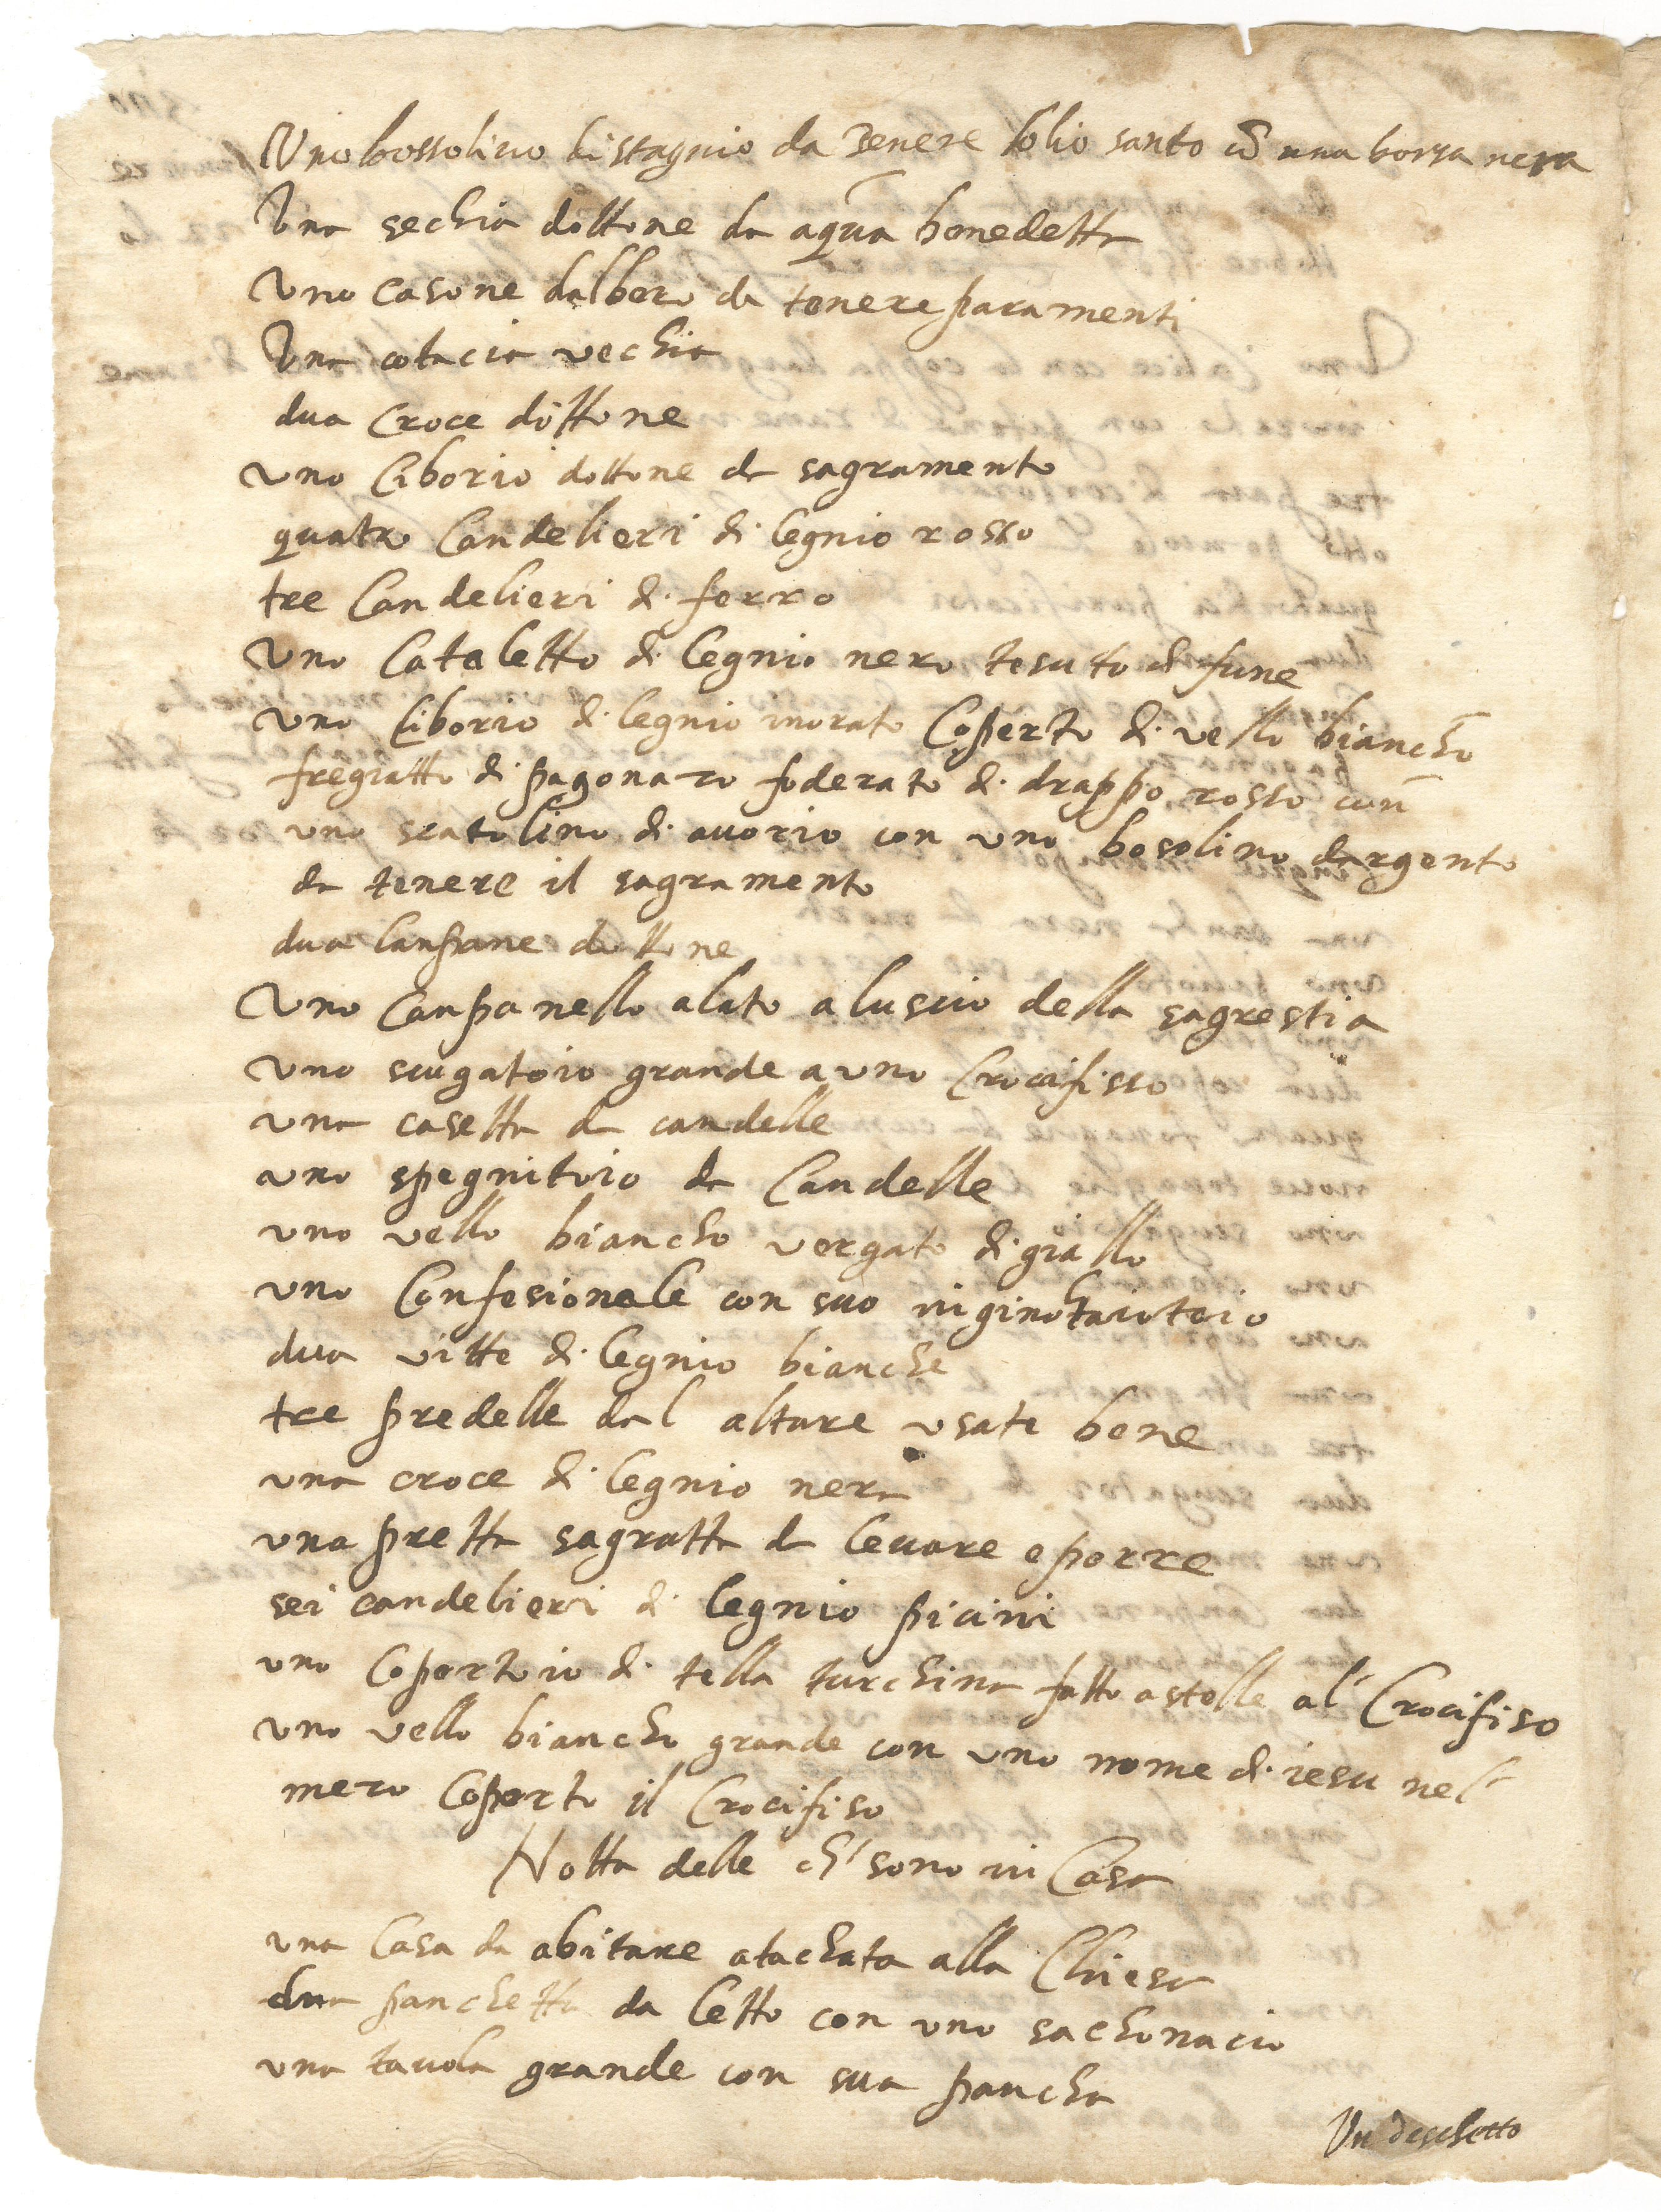 Uno bossolino di stagnio da tenere lolio santo cō una borsa nera
Una sechia dottone da aqua benedetta
Uno casone dalbero da tenere paramenti
Una cotacia vechia
dua Croce dottone
uno Ciborio dottone da sagramento
quatro Candelieri di legnio rosso
tre Candelieri di ferro
Uno Cataletto di legnio nero tesuto di fune
uno Ciborio di legnio inorato Coperto di vello biancho
fregiatto di pagonazo foderato di drappo rosso con
uno scatolino di auorio con uno bosolino dargento
da tenere il sagramento
dua lanpane dottone
Uno Canpanello alato a luscio della sagrestia
uno sciugatoio grande a uno Crocifisso
una casetta da candelle
uno spegnitoio da Candelle
uno vello biancho vergato di giallo
uno Confesionale con suo inginochiatoio
dua vitte di legnio bianche
tre predelle dal altare usate bene
una croce di legnio nera
una pretta sagratta da levare e porre
sei candelieri di legnio picini
uno Copertoio di tella turchina fatto a stelle al Crocifiso
uno vello biancho grande con uno nome di iesu nel
mezo Coperto il Crocifiso
Notta delle ch' sono in Casa
una Casa da abitare atachata alla Chiesa
dua panchette da letto con uno sachonacio
una tauola grande con sua pancha
Un deschetto